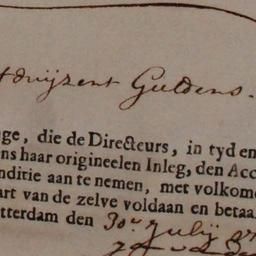 duijzent Guldens.
nge, die de Directeurs, in tyd en
ns haar origineelen Inleg, den Acc
nditie aan te nemen, met volkome
art van de zelve voldaan en betaa
tterdam den 30e. Julij